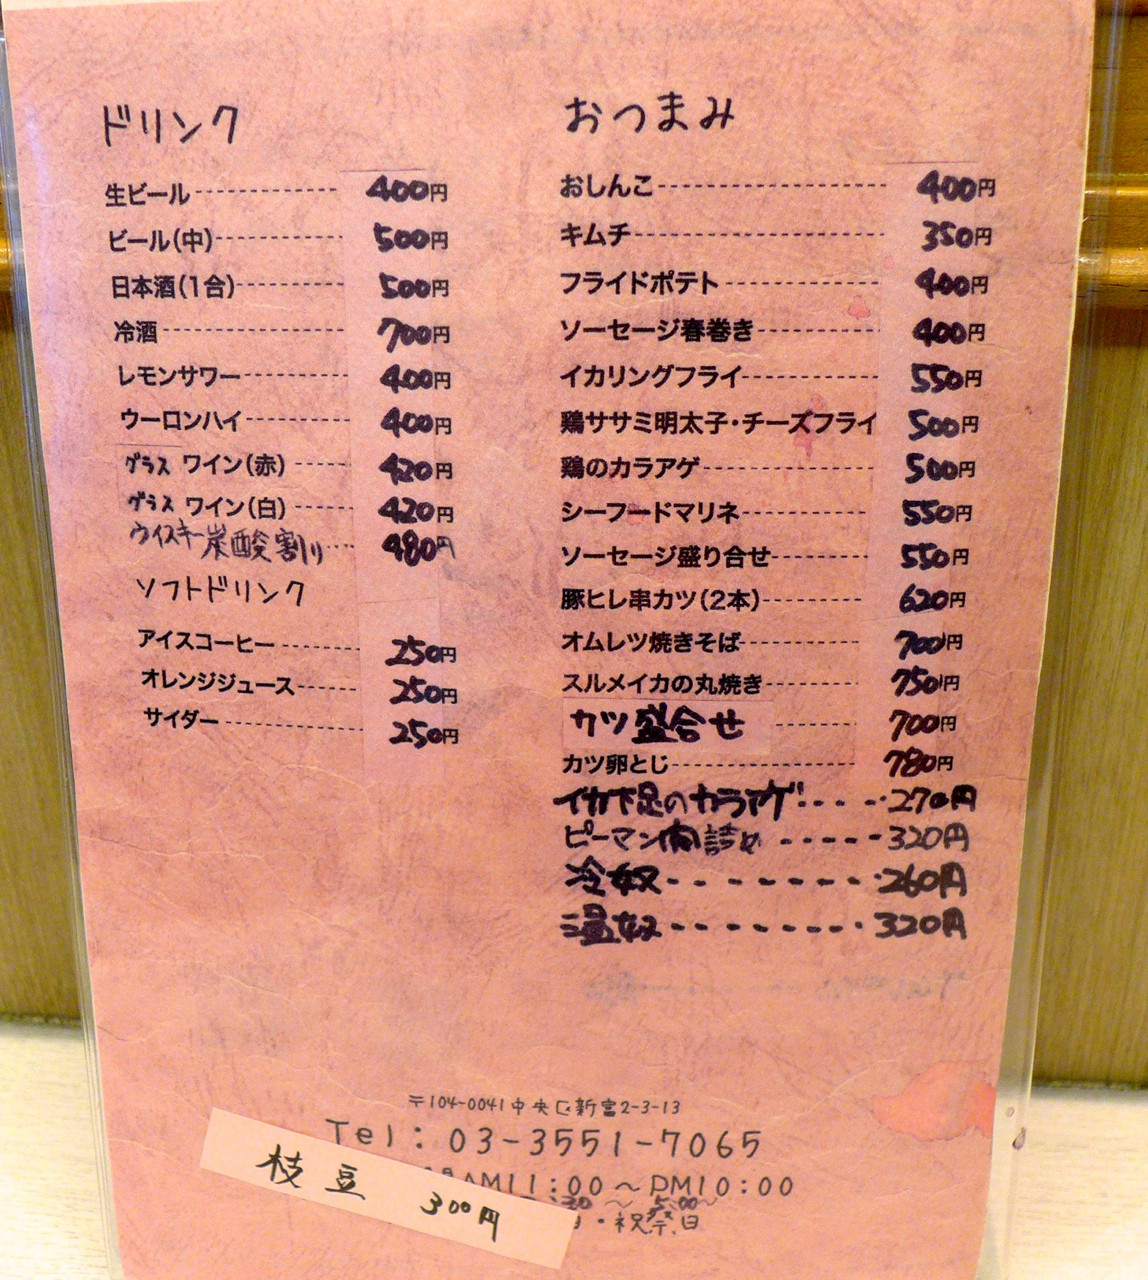 ドリンク
生ビール 400円
ビール(中) 500円
日本酒(1合) 500円
冷酒 700円
レモンサワー 400円
ウーロンハイ 400円
グラス ワイン(赤) 420円
グラス ワイン(白) 420円
ウイスキー炭酸割り 480円
ソフトドリンク
アイスコーヒー 250円
オレンジジュース 250円
サイダー 250円
おつまみ
おしんこ 400円
キムチ 350円
フライドポテト 400円
ソーセージ春巻き 400円
イカリングフライ 550円
鶏ササミ明太子・チーズフライ 500円
鶏のカラアゲ 500円
シーフードマリネ 550円
ソーセージ盛り合せ 550円
豚ヒレ串カツ(2本) 620円
オムレツ焼きそば 700円
スルメイカの丸焼き 750円
カツ盛合せ 700円
カツ卵とじ 780円
イカ下足のカラアゲ 270円
ピーマン肉詰め 320円
冷奴 260円
温奴 320円
〒104-0041中央区新富2-3-13
Tel：03-3551-7065
AM11：00～PM10：00
30～5:00～
・祝祭日
枝豆 300円